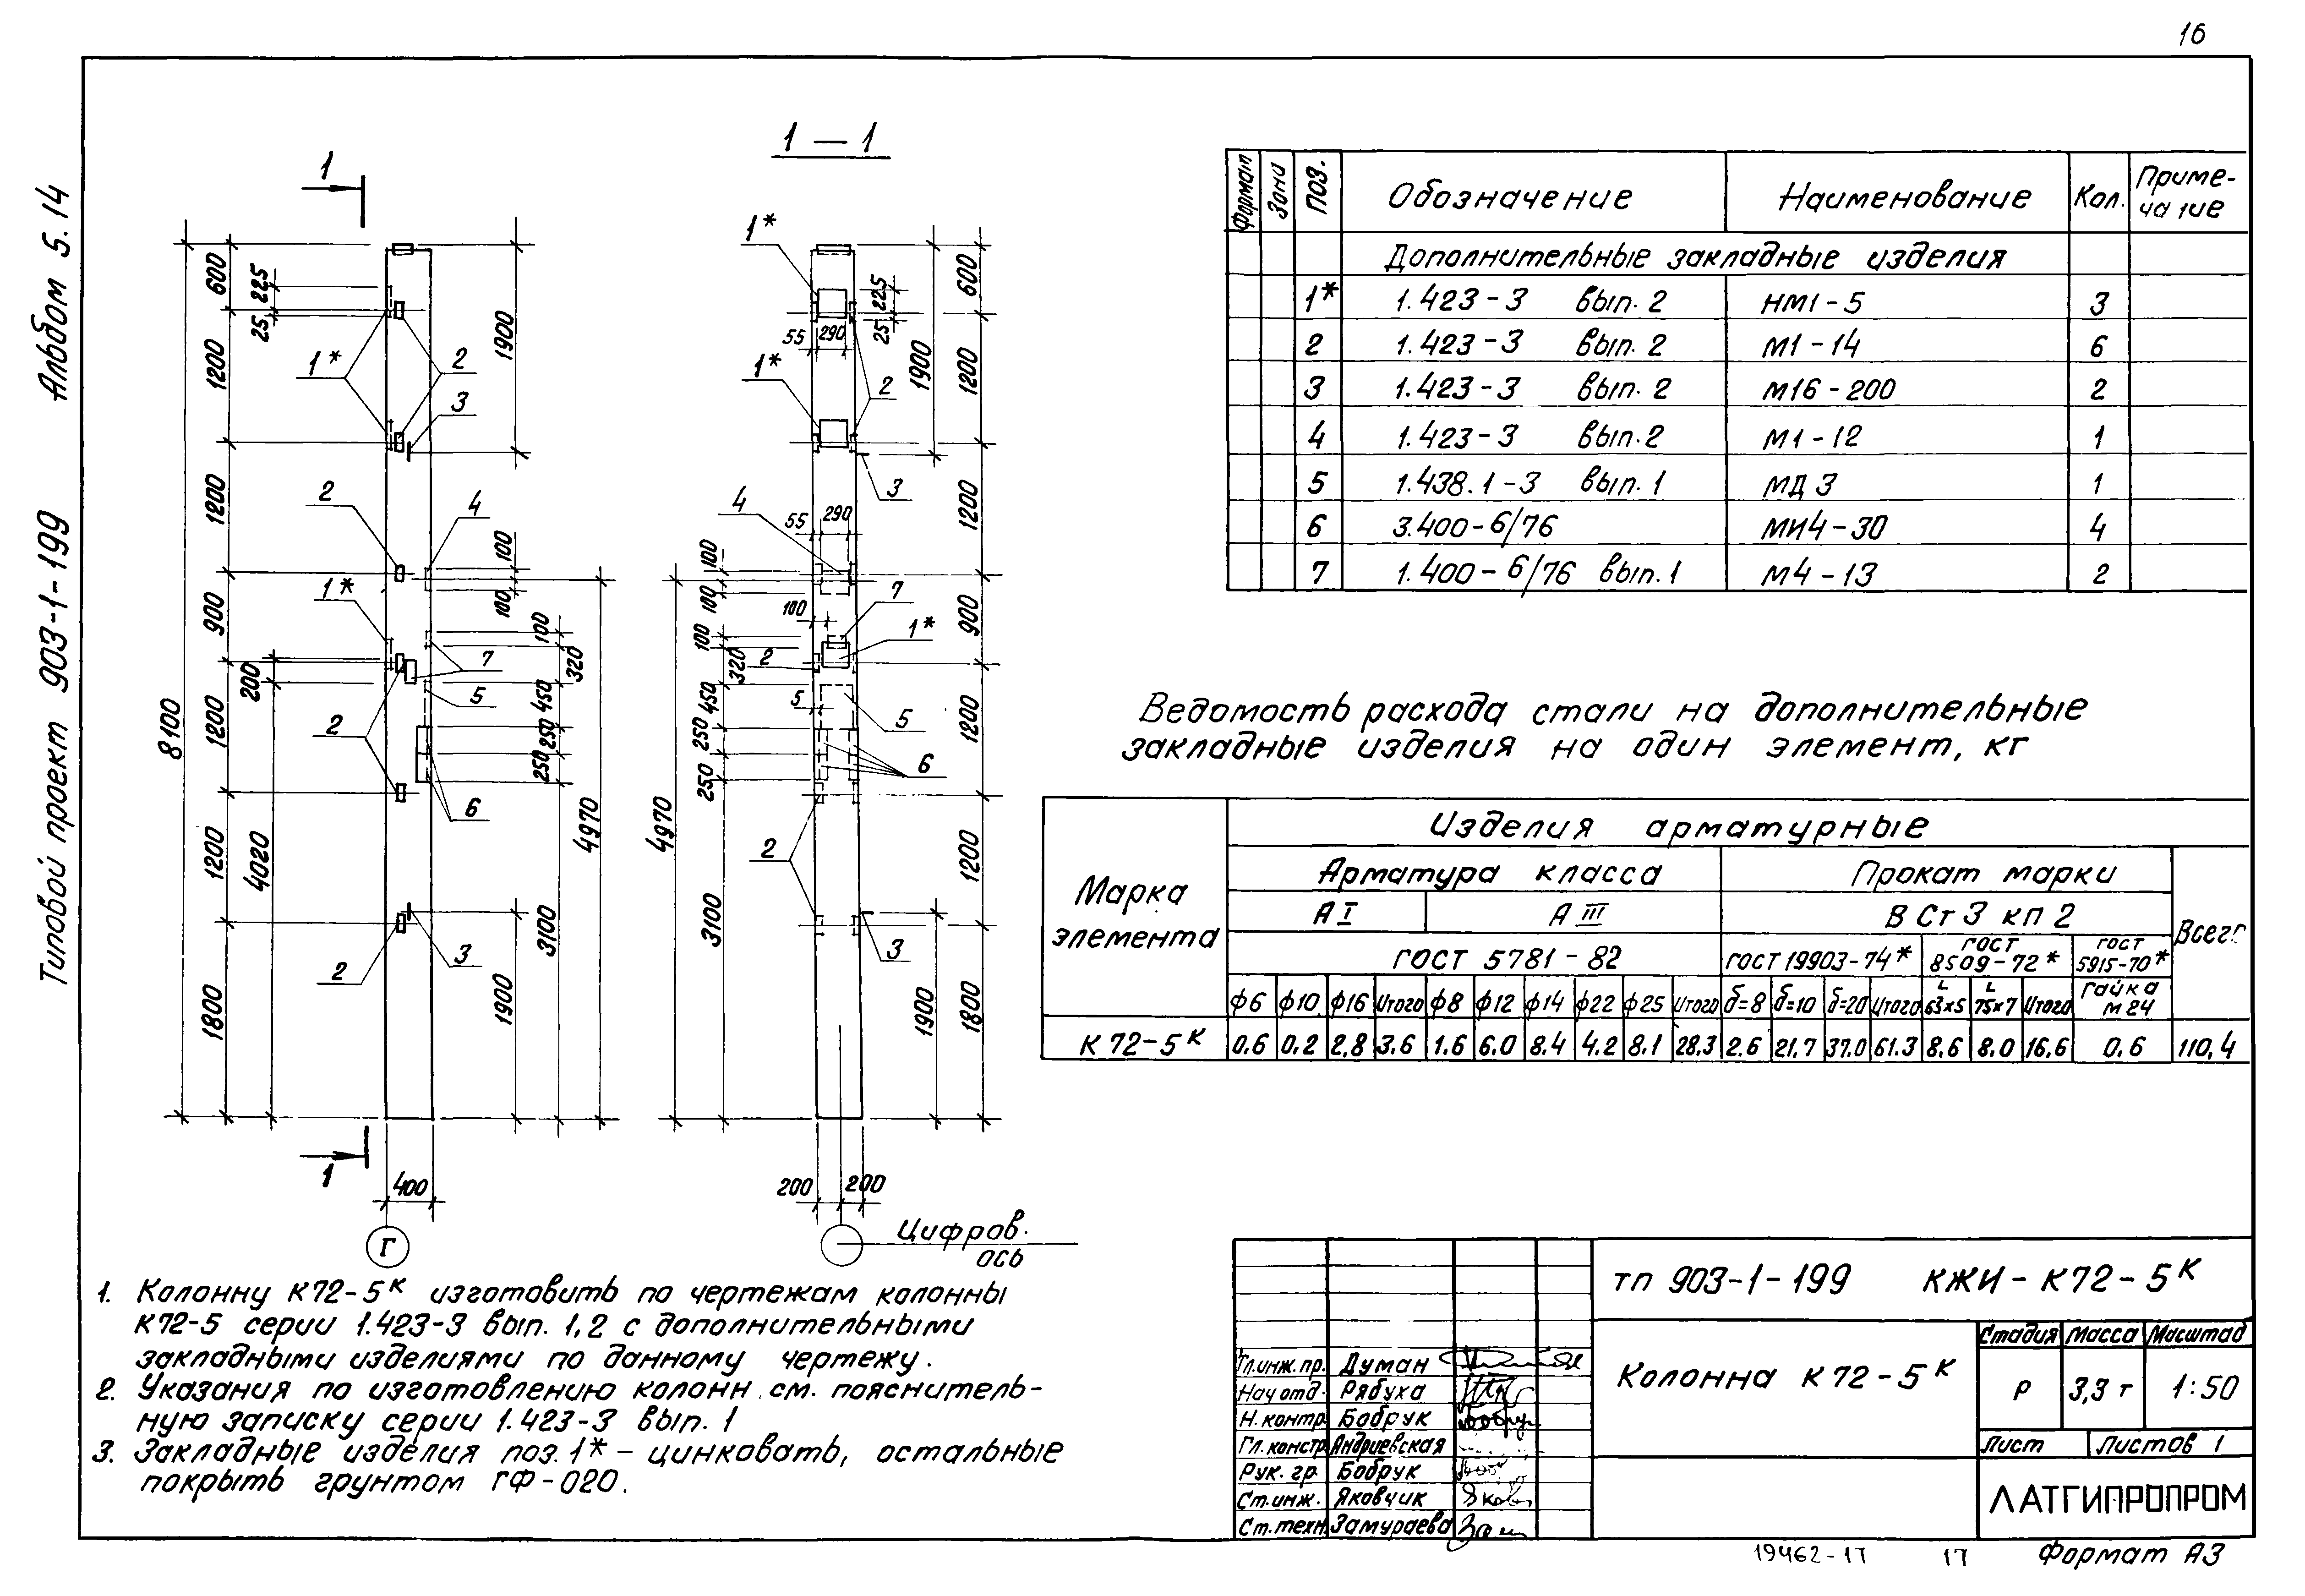 16
Альбом 5.14
Типовой проект 903-1-199
1
1 — 1
8100
600
225
25
1200
1200
900
200
1200
4020
1200
1800
1*
2
3
1900
2
4
100
100
1*
7
100
320
5
450
250
250
2
6
4970
3100
2
3
1900
1
400
Г
1*
225
25
55
290
600
1*
2
1900
1200
3
4
55
290
1200
100
100
7
100
1*
900
100
320
2
450
5
5
250
6
250
1200
4970
3100
2
1200
3
1900
1800
200
200
Цифров.
ось
Формат
Зона
Поз.
Обозначение
Наименование
Кол.
Приме-
чание
Дополнительные закладные изделия
1* 1.423-3 вып. 2 НМ1-5 3
2 1.423-3 вып. 2 М1-14 6
3 1.423-3 вып. 2 М16-200 2
4 1.423-3 вып. 2 М1-12 1
5 1.438.1-3 вып. 1 МД 3 1
6 3.400-6/76 МИ4-30 4
7 1.400-6/76 вып. 1 М4-13 2
Ведомость расхода стали на дополнительные
закладные изделия на один элемент, кг
Марка
элемента
Изделия арматурные
Арматура класса Прокат марки
А I А III В Ст 3 кп 2 Всего
ГОСТ 5781-82 ГОСТ 19903-74* ГОСТ 8509-72* ГОСТ 5915-70*
ф6 ф10 ф16 Итого ф8 ф12 ф14 ф22 ф25 Итого δ=8 δ=10 δ=20 Итого L 63х5 L 75х7 Итого Гайка М24
К 72-5К 0.6 0.2 2.8 3.6 1.6 6.0 8.4 4.2 8.1 28.3 2.6 21.7 37.0 61.3 8.6 8.0 16.6 0.6 110,4
1. Колонну К72-5К изготовить по чертежам колонны
К72-5 серии 1.423-3 вып. 1,2 с дополнительными
закладными изделиями по данному чертежу.
2. Указания по изготовлению колонн см. пояснитель-
ную записку серии 1.423-3 вып. 1
3. Закладные изделия поз. 1* - цинковать, остальные
покрыть грунтом ГФ-020.
ТП 903-1-199 КЖИ-К72-5К
Колонна К 72-5К
Стадия Масса Масштаб
Р 3,3 т 1:50
Лист Листов 1
ЛАТГИПРОПРОМ
Гл.инж.пр. Думан
Нач отд. Рябуха
Н.контр Бобрук
Гл.констр Андриевская
Рук. гр. Бобрук
Ст.инж. Яковчик
Ст.техн. Замураева
19462-17 17 Формат А3